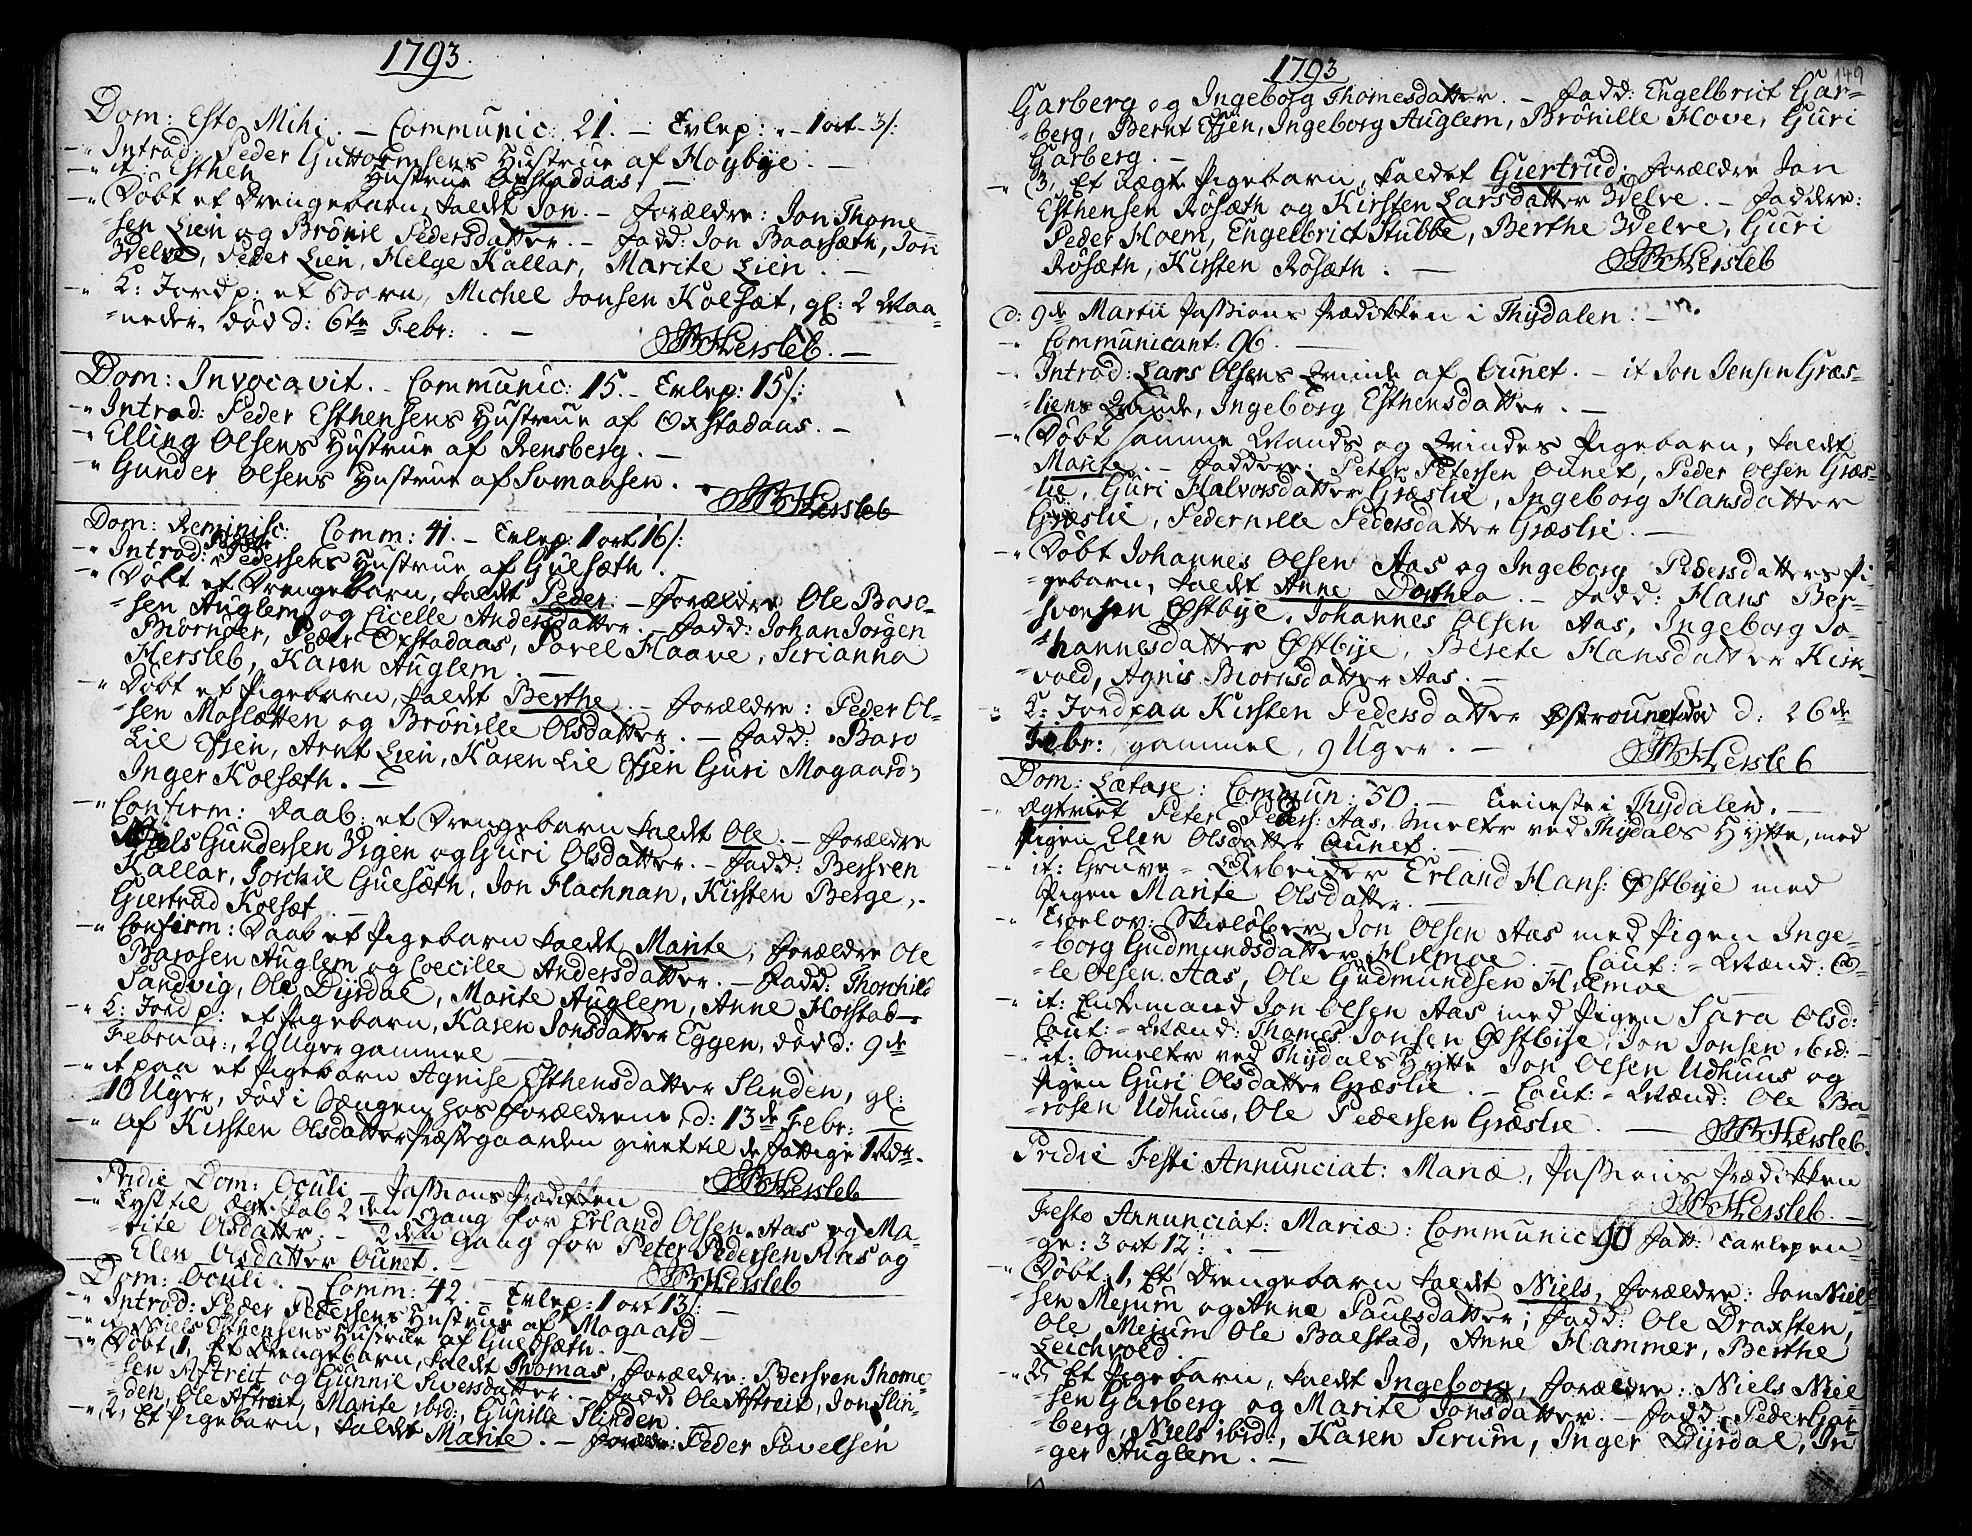 1793.
Dom: Esto Mihi. — Communic: 21. — Tvlep: „ - 1 ort - 3/:
—" Introd: Peder Guttormsens Hustrue af Høybye. —
—" it Esthen Hustrue Oxstadaas. —
—" Døbt et Drengebarn, kaldet Jon. — Forældre: Jon Thome-
-sen Lien og Brønil Pedersdatter. — Fadd: Jon Baarsæth, Jon
Welve, Peder Lien, Helge Kallar, Marite Lien. —
—" K: Jordp: et Barn, Michel Jonsen Kolsæt, gl: 2 Maa-
-neder, død d: 6te Febr: . —
JBHersleb. —
Dom: Invocavit. — Communic: 15. — Tvlep: 15/:
—" Introd: Peder Esthensens Hustrue af Oxstadaas. —
—" Elling Olsens Hustrue af Rensberg. —
—" Gunder Olsens Hustrue af Svmaasen. —
JBHersleb
Dom: Reminisc: Comm: 41. — Tvlep: 1 ort 16/:
—" Introd: Pedersens Hustrue af Guesæth.
—" Døbt et Drengebarn, kaldet Peder. — Forældre Ole Baro-
-sen Auglem og Cicelle Andersdatter. — Fadd: Johan Jørgen
Biørnner, Peder Oxstadaas, Povel Haave, Sirianna
Hersleb, Karen Auglem. —
—" Døbt et Pigebarn, kaldet Berthe. — Forældre: Peder Ol-
-sen Moslætten og Brønille Olsdatter. — Fadd: Baro
Lil Efjen, Arnt Lien, Karen Lil Efjen Guri Mogaard,
Inger Kolsæth. —
—" Confirm: Daab: et Drengebarn kaldet Ole. — Forældre
Niels Gundersen Vigen og Guri Olsdatter. — Fadd: Bersven
Kallar, Torchil Guesæth, Jon Flachnan, Kirsten Berge,
Giertrud Kolsæt. —
—" Confirm: Daab et Pigebarn kaldet Marite, Forældre Ole
Barosen Auglem og Coecille Andersdatter. — Fadd: Thorchild
Sandvig, Ole Dyrdal, Marite Auglem, Anne Horstad —
—" K: Jordp: et Pigebarn, Karen Jonsdatter Eggen, død d: 9de
Februar:, 20 Uger gammel —
—" it paa et Pigebarn Agnise Esthensdatter Slinden, gl:
10 Uger, død i Sængen hos Forældrene, d: 13de Febr: —
—" Af Kirsten Olsdatter Præstegaarden givet til de Fattige 1 rdr.
JBHersleb
Pridie Dom: Oculi — Passions Prædikken
—" Lyst til Ægt: skab 2den Gang for Erland Olsen Aas og Ma-
-rite Olsdatter. — 2den Gang for Peter Pedersen Aas og
Elen Olsdatter Ounet. —
JBHersleb
Dom: Oculi. — Comm: 42. — Tvlep: 1 ort 13/: —
—" Introd: Peder Pedersens Hustrue af Mogaard —
—" it Niels Esthensens Hustrue af Guesæth. —
—" Døbt, 1, Et Drengebarn, kaldet Thomas, Forældre: Bersven Thome-
-sen Aftreit og Gunnil Siversdatter. — Fadd: Ole Aftreit, Jon Slin-
-den, Ole Aftreit, Marite ibid:, Gunille Slinden
—" 2, Et Pigebarn, kaldet Marite. — Foræld: Peder Povelsen
1793
149
Garberg og Ingeborg Thomesdatter. — Fadd: Engelbrict Gar-
-berg, Bernt Efjen, Ingeborg Auglem, Brønille Hove, Guri
Garberg. —
—" 3, Et uægt. Pigebarn, kaldet Giertrud, Forældre Jon
Esthensen Røsæth og Kirsten Larsdatter Welve. — Faddere:
Peder Hoem, Engelbrict Stubbe, Berthe Welve, Guri
Røsæth, Kirsten Røsæth. —
JBHersleb
d: 9de Martii Passions Prædikken i Thydalen: —
—" Communicant. 96. —
—" Introd: Lars Olsens Qvinde af Ounet. — it Jon Jensen Græs-
-liens Qvinde, Ingeborg Esthensdatter. —
—" Døbt samme Mands og Qvindes Pigebarn, kaldet
Marite. — Faddere: Peter Petersen Ounet, Peder Olsen Græs-
-lie, Guri Halvorsdatter Græslie, Ingeborg Hansdatter
Græslie, Pedernille Pedersdatter Græslie. —
—" Døbt Johannes Olsen Aas og Ingeborg Pedersdatters Pi-
-gebarn, kaldet Anne Dorthea. — Fadd: Hans Ber-
-svensen Østbye, Johannes Olsen Aas, Ingeborg Jo-
-hannesdatter Østbye, Berete Hansdatter Kirk-
vold, Agnis Biørnsdatter Aas. —
K: Jord paa Kirsten Pedersdatter Østrounet død d: 26de
Febr: gammel, 9 Uger. —
JBHersleb
Dom: Lætare: Commun: 50. — Tieneste i Thydalen. —
—" Ægteviet Peter Peders: Aas, Smelter ved Thydals Hytte, med
Pigen Elen Olsdatter Ounet. —
—" it: Gruve-Arbeider Erland Hans: Østbye med
Pigen Marite Olsdatter. —
—" Trolov: Skieløber, Jon Olsen Aas med Pigen Inge-
-borg Gudmundsdatter Hilmoe. — Caut: Mænd: O-
-le Olsen Aas, Ole Gudmundsen Hilmoe —
—" it: Enkemand Jon Olsen Aas med Pigen Sara Olsd:
Caut: Mænd: Thomes Jonsen Østbye, Jon Jonsen ibid: —
—" it: Smelter ved Thydals Hytte Jon Olsen Udhuus og
Pigen Guri Olsdatter Græslie. — Caut: Mænd: Ole Ba-
-rosen Udhuus, Ole Pedersen Græslie. —
JBHersleb.
Pridie Festi Annunciat: Mariæ, Passions Prædikken
JBHersleb. —
Festo Annunciat: Mariæ: Communic 90 Fatt: Tavlepen-
-ge: 3 ort 12/: . —
—" Døbt: 1, Et Drengebarn kaldet Niels, Forældre: Jon Niel-
-sen Mejum og Anne Paulsdatter; Fadd: Ole Draxsten,
Ole Mejum Ole Balstad, Anne Hammer, Berthe
Leichvold. —
—" 2, Et Pigebarn, kaldet Ingeborg, Forældre: Niels Niel-
-sen Garberg og Marite Jonsdatter. — Fadd: Peder Gar-
-berg, Niels ibid:, Karen Serum, Inger Dyrdal, In-
-ger Auglem. —